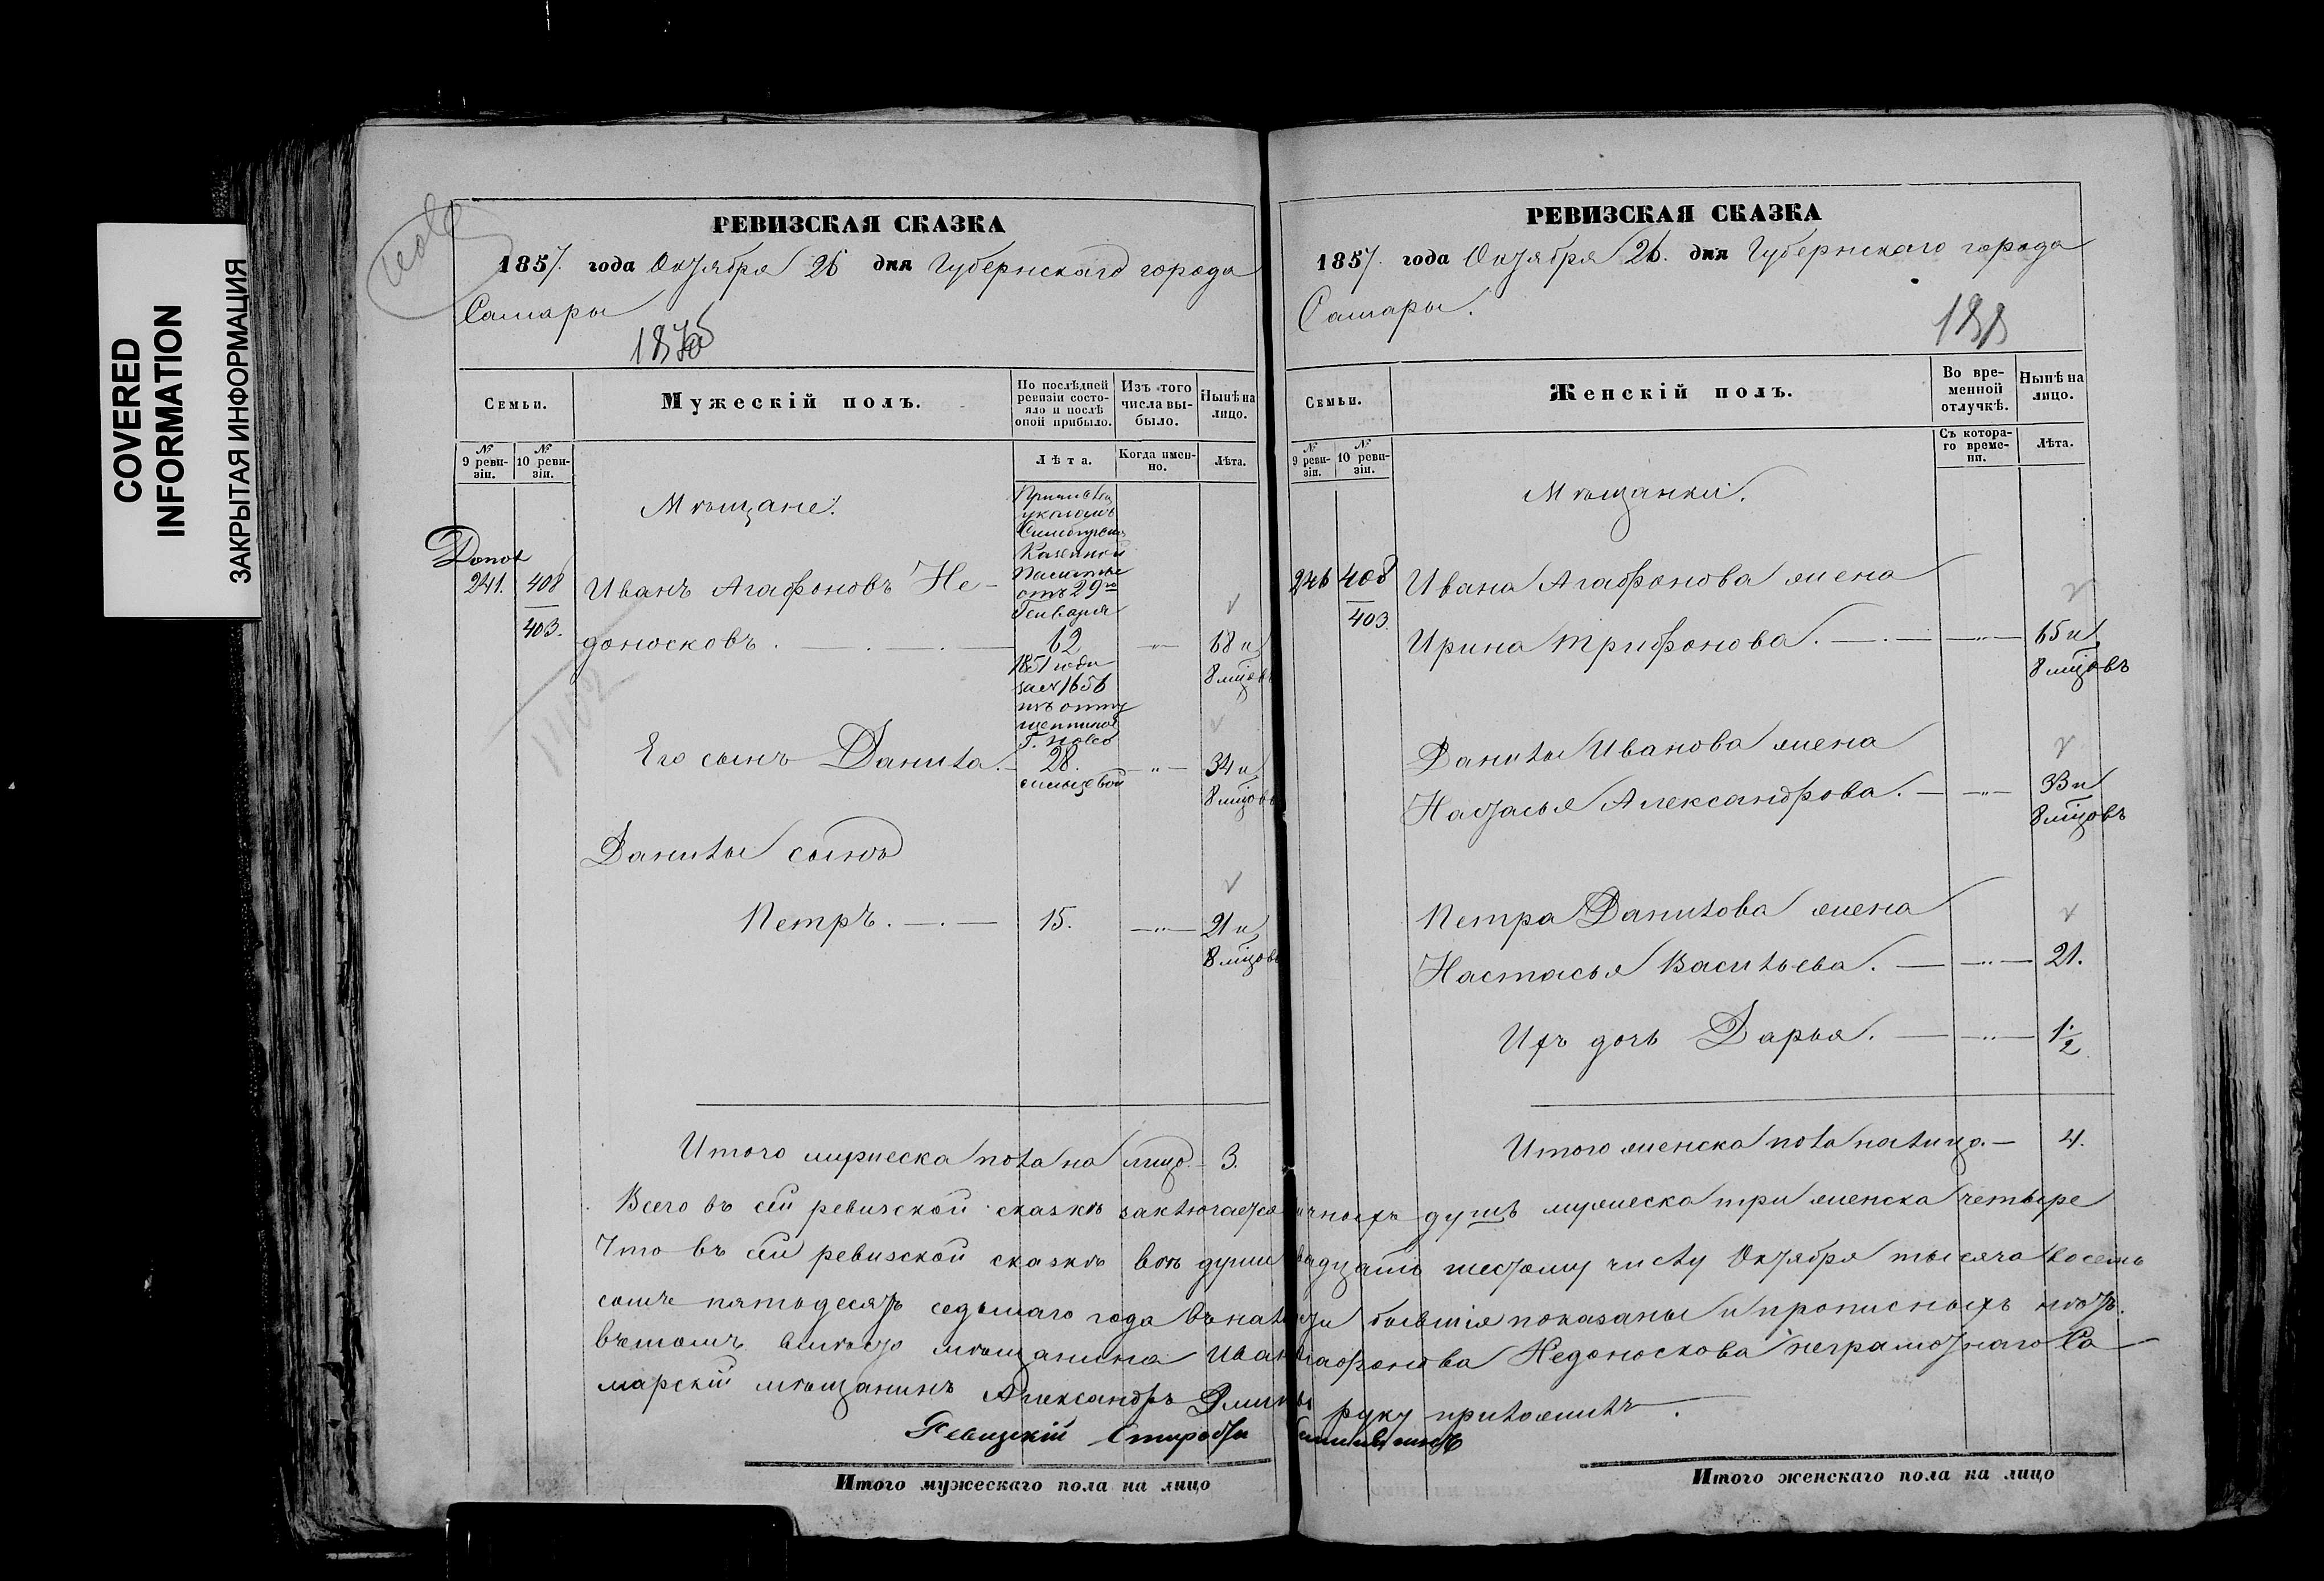 COVERED
INFORMATION
ЗАКРЫТАЯ ИНФОРМАЦИЯ
РЕВИЗСКАЯ СКАЗКА
1857. года Октября 26 дня Губернскаго города
Самары
Семьи.
Мужескій полъ.
По послѣдней ревизіи состояло и послѣ оной прибыло.
Изъ того числа выбыло.
Нынѣ на лицо.
№ 9 ревизіи.
№ 10 ревизіи.
Лѣта.
Когда именно.
Лѣта.
Мѣщане.
указомъ
Казенной
Палаты
отъ 29го
Генваря
241. 408 Иванъ Агафоновъ Не-
403. доносковъ. 62 68 и
1851 года 8 мцовъ
Его сынъ Данила. 28. 34 и
8 мцовъ
Данилы сынъ
Петръ. 15. 21 и
8 мцовъ
Итого мужеска пола на лицо 3.
РЕВИЗСКАЯ СКАЗКА
1857. года Октября 26. дня Губернскаго города
Самары.
Семьи.
Женскій полъ.
Во временной отлучкѣ.
Нынѣ на лицо.
№ 9 ревизіи.
№ 10 ревизіи.
Съ котораго времени.
Лѣта.
Мѣщанки.
246 408 Ивана Агафонова жена
403 Ирина Трифонова. 65 и
8 мцовъ
Данилы Иванова жена
Настасья Александрова. 33 и
8 мцовъ
Петра Данилова жена
Настасья Васильева. 21.
Ихъ дочь Дарья. 1 1/2
Итого женска пола налицо. 4.
Всего въ сей ревизской сказкѣ заключается душъ мужеска три женска четыре
Что въ сей ревизской сказкѣ всѣ души шестому числу Октября тысяча восемь
сотъ пятьдесятъ седьмаго года бывшія показаны и прописныхъ нѣтъ.
въ томъ вмѣсто мѣщанина Ивана Агафонова Недоноскова неграмотнаго Са-
марскій мѣщанинъ Александръ руку приложилъ.
Ревизскій
Итого мужескаго пола на лицо
Итого женскаго пола на лицо